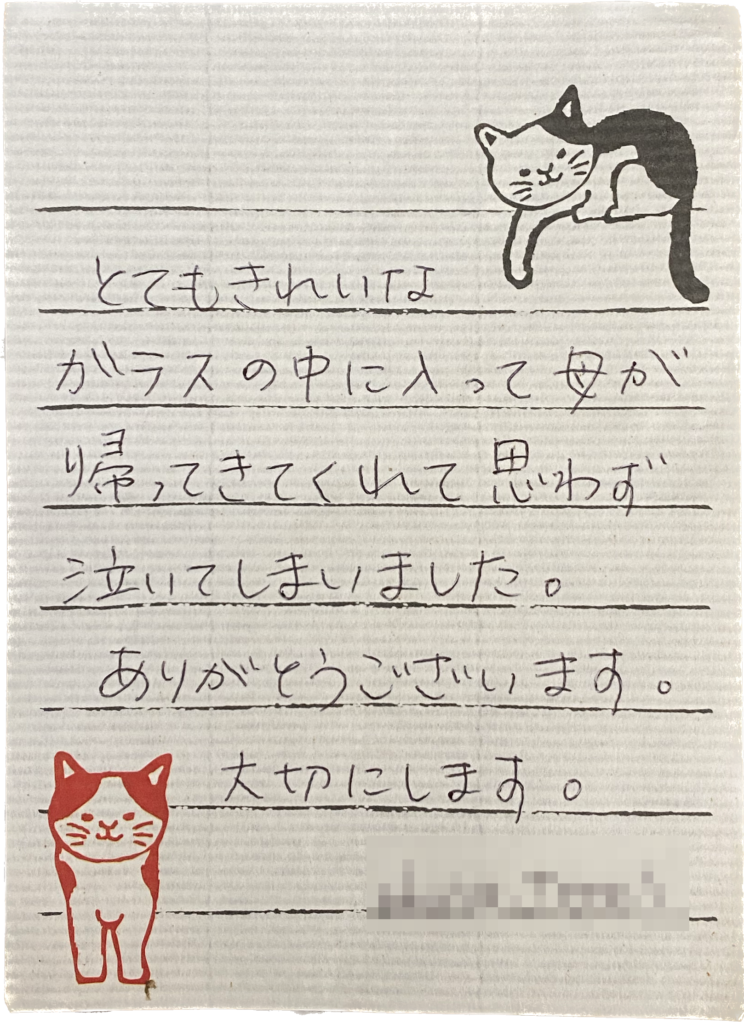 とてもきれいな
ガラスの中に入って母が
帰ってきてくれて思わず
泣いてしまいました。
ありがとうございます。
大切にします。